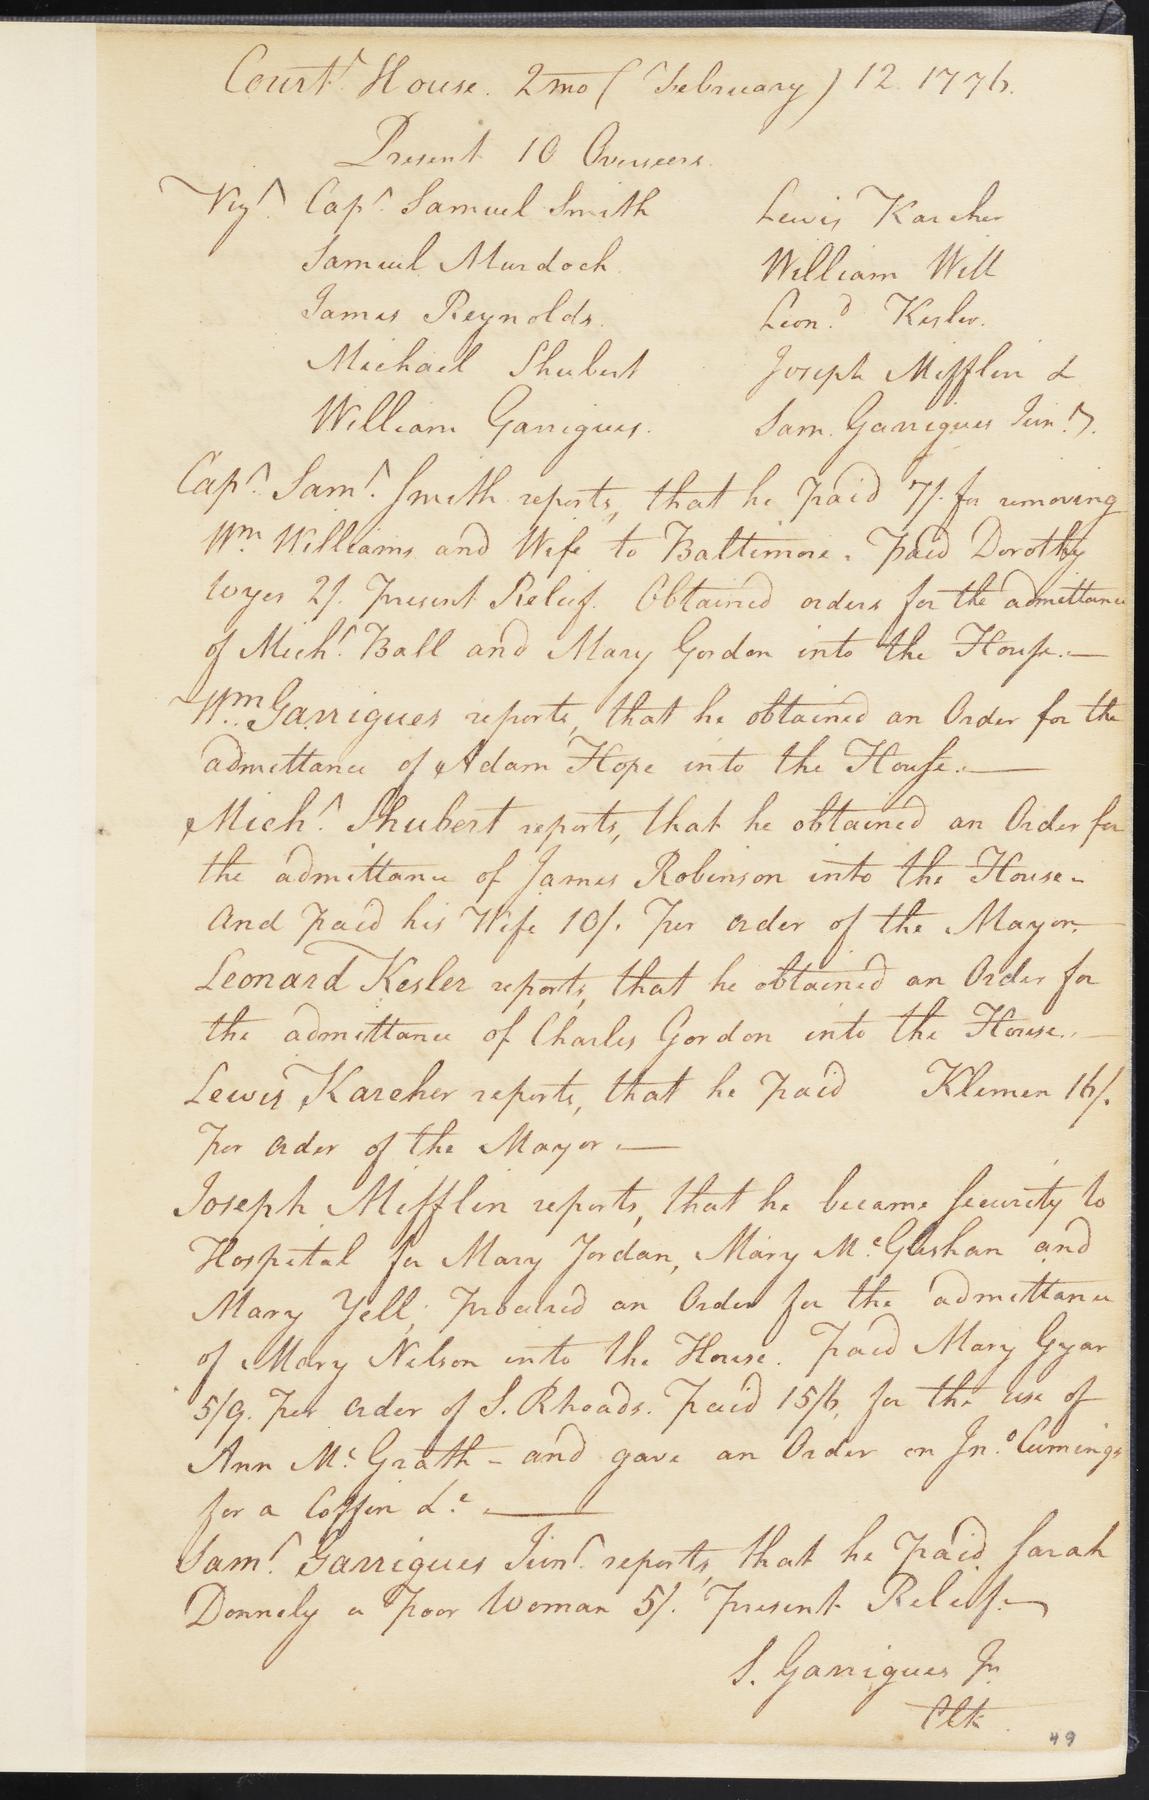 Court House. 2mo (February) 12. 1776.
Present 10 Overseers.
Vizt. Capt. Samuel Smith Lewis Karcher
Samuel Murdoch William Will
James Reynolds. Leond. Kesler.
Michael Shubert Joseph Mifflin &
William Garrigues. Sam. Garrigues Junr.
Capt. Saml. Smith reports, that he paid 7/. for removing
Wm. Williams and Wife to Baltimore. Paid Dorothy
Woyes 2/. Present Relief. Obtained orders for the admittance
of Michl. Ball and Mary Gordon into the House.—
Wm. Garrigues reports, that he obtained an Order for the
admittance of Adam Hope into the House.—
Michl. Shubert reports, that he obtained an Order for
the admittance of James Robinson into the House-
and paid his Wife 10/. Per order of the Mayor.—
Leonard Kesler reports, that he obtained an Order for
the admittance of Charles Gordon into the House.—
Lewis Karcher reports, that he paid Klemen 16/.
Per order of the Mayor.—
Joseph Mifflin reports, that he became Security to
Hospital for Mary Jordan, Mary Mc.Glashan and
Mary Yell; procured an Order for the admittance
of Mary Nelson into the House. Paid Mary Gyar
5/9. Per order of S. Rhoads. Paid 15/6, for the use of
Ann Mc. Grath - and gave an Order on Jno. Cumings
for a Coffin &c.—
Saml. Garrigues Junr. reports, that he paid Sarah
Donnely a Poor Woman 5/. Present Relief.—
S. Garrigues Jr.
Clk.
49